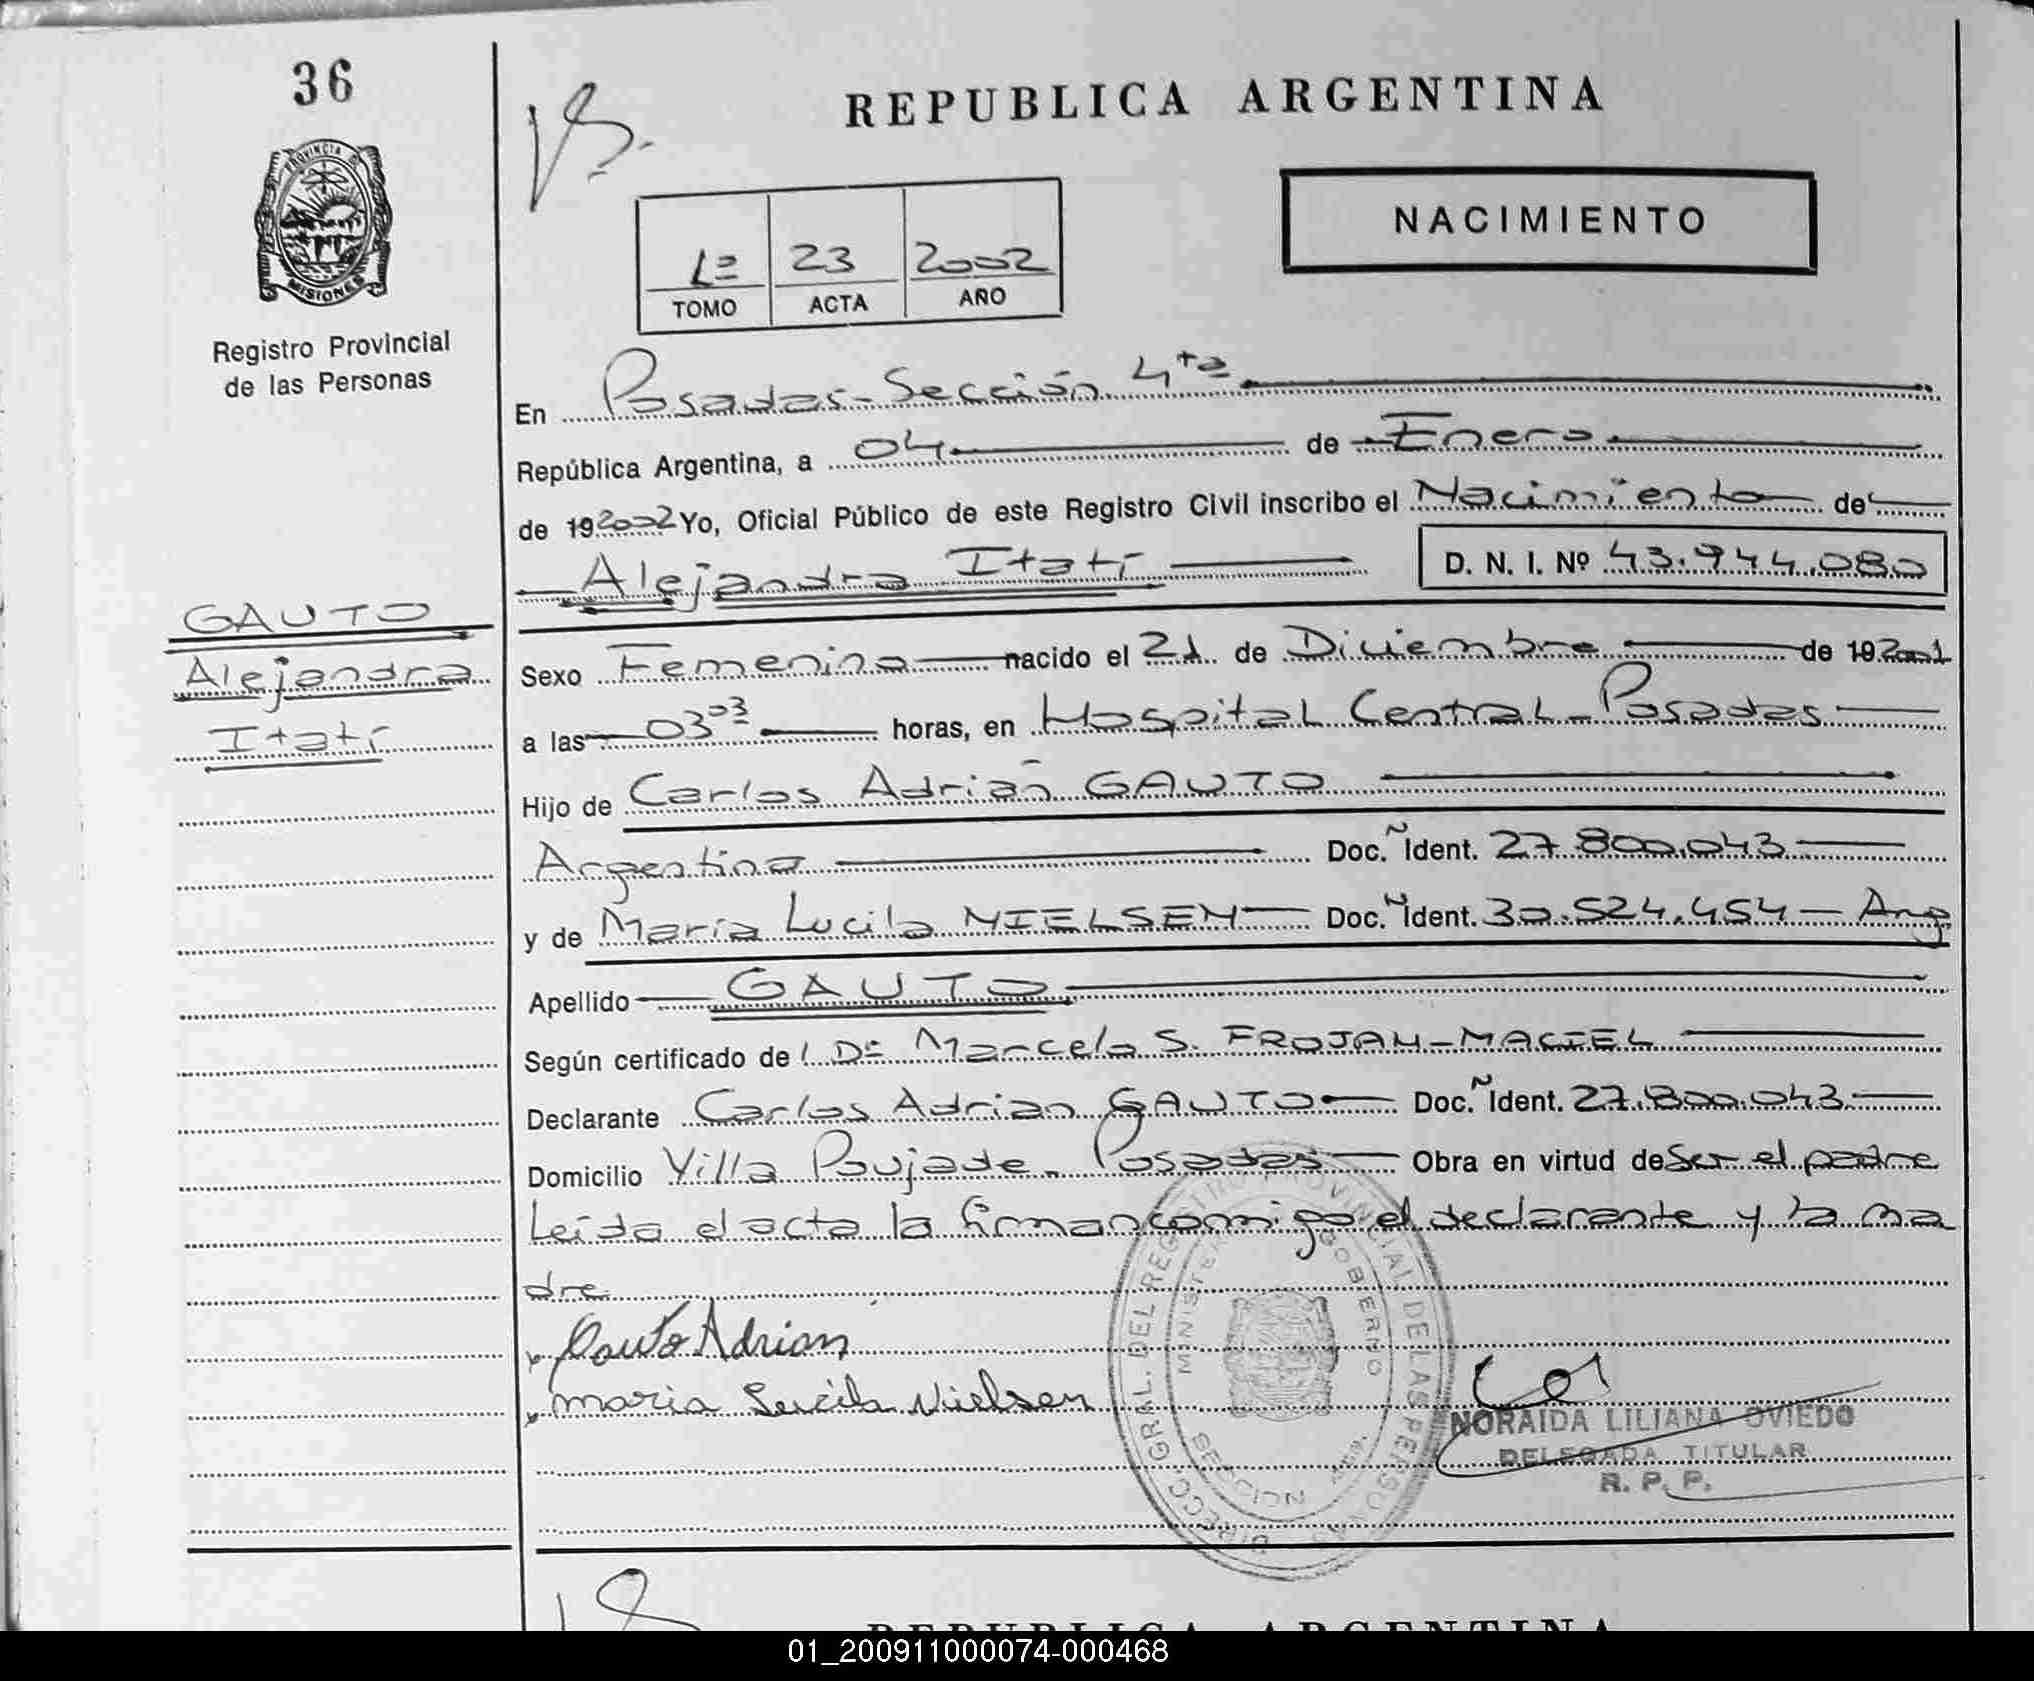 36
REPUBLICA ARGENTINA
PROVINCIA DE
MISIONES
NACIMIENTO
1º 23 2002
TOMO ACTA AÑO
Registro Provincial
de las Personas
En Posadas - Sección 4ta
República Argentina, a 04 de Enero
de 19 2002 Yo, Oficial Público de este Registro Civil inscribo el Nacimiento de
Alejandra Itatí D. N. I. Nº 43.944.080
GAUTO
Alejandra
Itatí
Sexo Femenino nacido el 21 de Diciembre de 19 2001
a las 03 03 horas, en Hospital Central - Posadas
Hijo de Carlos Adrián GAUTO
Argentina Doc. Ñ Ident. 27.800.043
y de María Lucila NIELSEN Doc. Ñ Ident. 30.524.454 - Arg
Apellido GAUTO
Según certificado de Dr Marcelo S. FROJAN-MACIEL
Declarante Carlos Adrian GAUTO Doc. Ñ Ident. 27.800.043
Domicilio Villa Poujade - Posadas Obra en virtud de Ser el padre
Leída el acta la firman conmigo el declarante y la ma
dre
Gauto Adrian
maria Lucila Nielsen
DIRECC. GRAL. DEL REGISTRO PROVINCIAL DE LAS PERSONAS
GOBIERNO
SECCION
NORAIDA LILIANA OVIEDO
DELEGADA TITULAR
R. P. P.
REPUBLICA ARGENTINA
01_200911000074-000468